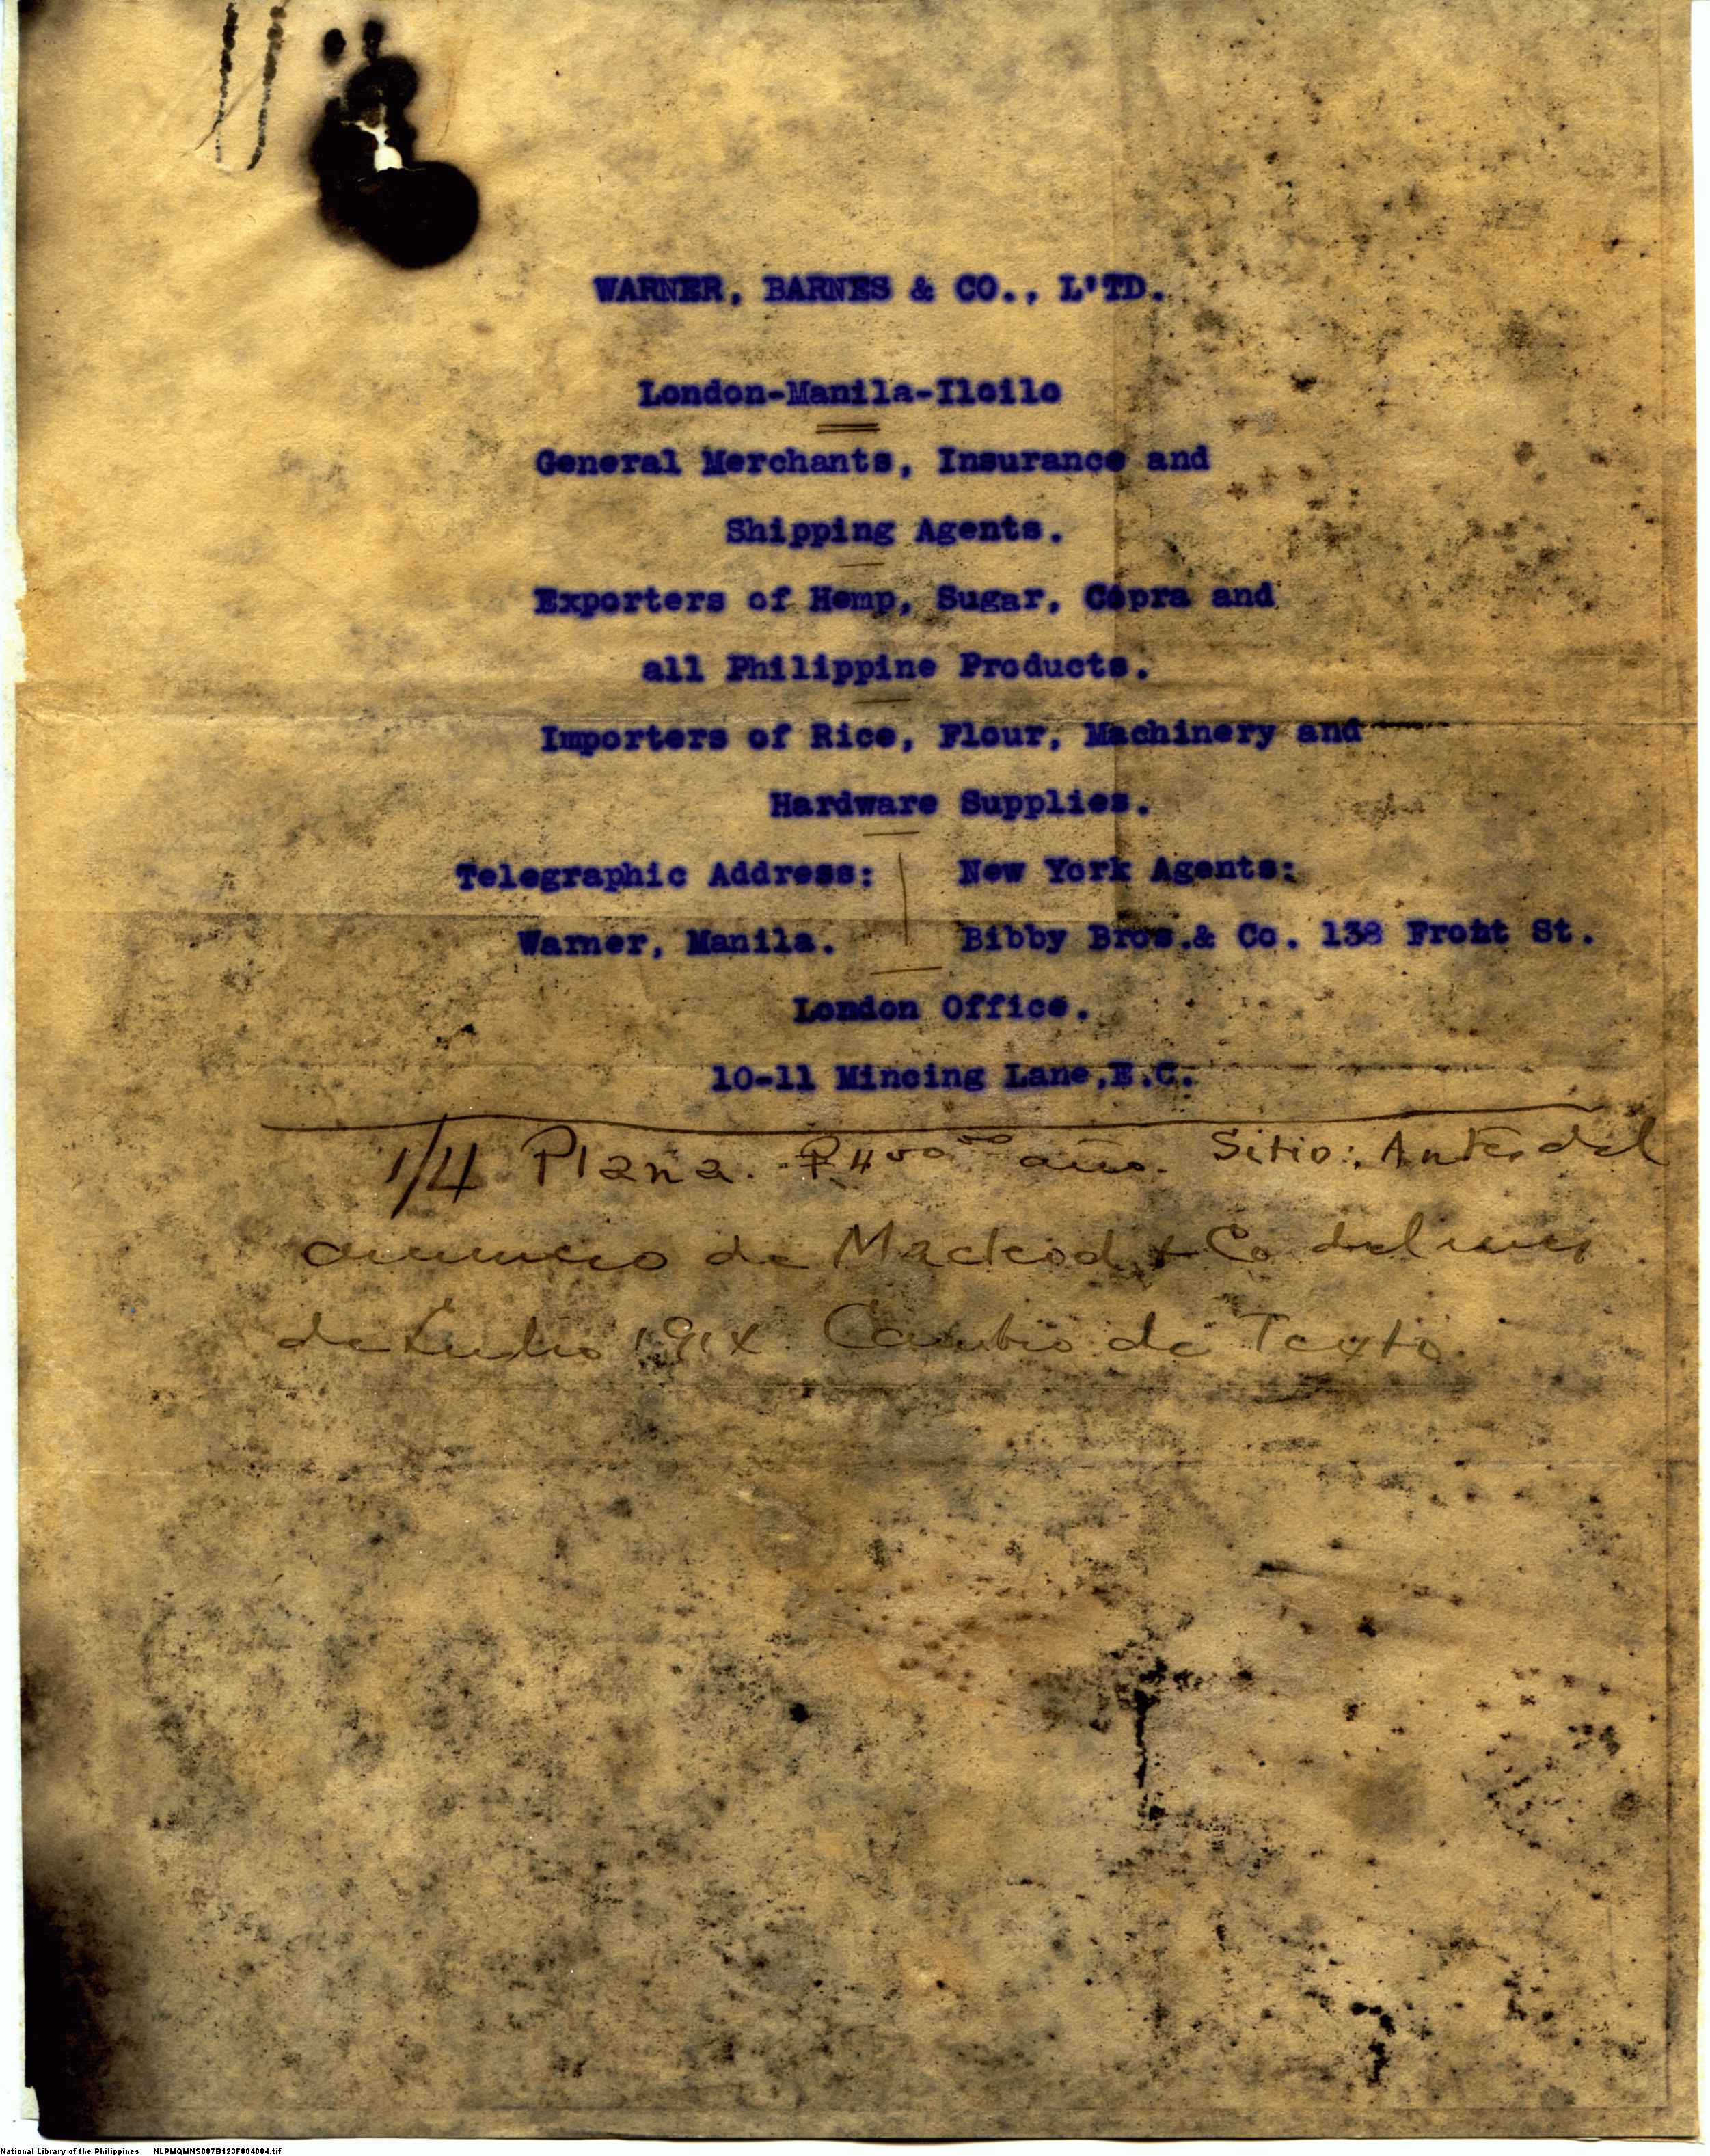 WARNER, BARNES & CO., L'TD.
London-Manila-Iloilo
General Merchants, Insurance and
Shipping Agents.
Exporters of Hemp, Sugar, Copra and
all Philippine Products.
Importers of Rice, Flour, Machinery and
Hardware Supplies.
Telegraphic Address: New York Agents:
Warner, Manila. Bibby Bros.& Co. 138 Front St.
London Office.
10-11 Mincing Lane,E.C.
1/4 Plana. ₱400 00 año. Sitio: Antes del
anuncio de Macleod & Co del mes
de Julio 1914. Cambio de Texto.
National Library of the Philippines NLPMQMNS007B123F004004.tif